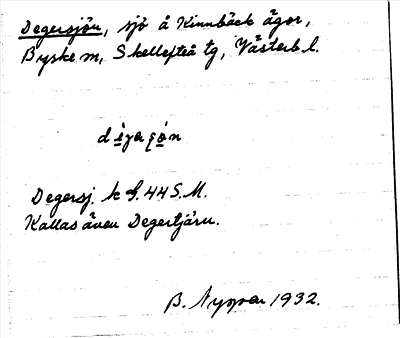 Degersjön, sjö å Kinnbäck ägor,
Byske sn, Skellefteå tg, Västerb l.
Degersj. k bl. 44 S.M.
Kallas även Degertjärn.
B. 1932.